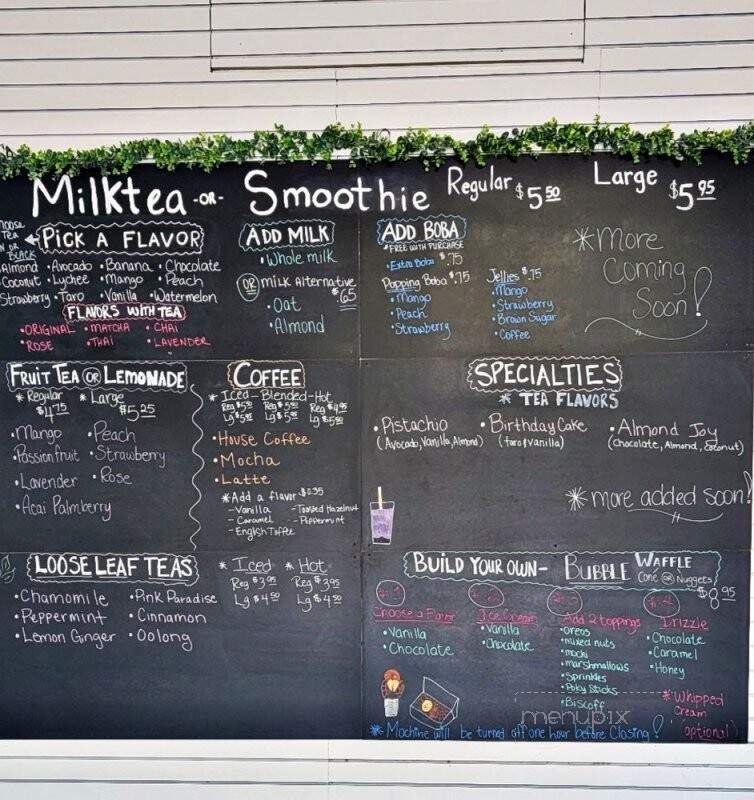 Milktea -or- Smoothie Regular $5.50 Large $5.95
Choose
Tea
BLACK
← PICK A FLAVOR
Almond •Avocado •Banana •Chocolate
Coconut •Lychee •Mango •Peach
Strawberry •Taro •Vanilla •Watermelon
FLAVORS WITH TEA
•ORIGINAL •MATCHA •CHAI
•ROSE •THAI •LAVENDER
ADD MILK
•Whole milk
OR milk Alternative
$.65
•Oat
•Almond
ADD BOBA
*FREE WITH PURCHASE
•Extra Boba $.75
Popping Boba $.75
•Mango
•Peach
•Strawberry
Jellies $.75
•Mango
•Strawberry
•Brown Sugar
•Coffee
*More
Coming
Soon!
FRUIT TEA OR LEMONADE
*Regular *Large
$4.75 $5.25
•Mango •Peach
•Passionfruit •Strawberry
•Lavender •Rose
•Acai Palmberry
COFFEE
*Iced - Blended - Hot
•House Coffee
•Mocha
•Latte
*Add a flavor
-Vanilla -Toasted Hazelnut
-Caramel -Peppermint
-English Toffee
SPECIALTIES
* TEA FLAVORS
•Pistachio •Birthday Cake •Almond Joy
(Avocado, Vanilla, Almond) (taro & vanilla) (Chocolate, Almond, Coconut)
*more added soon!
LOOSE LEAF TEAS
*Iced *Hot
Reg $3.95 Reg $3.95
Lg $4.50 Lg $4.50
•Chamomile •Pink Paradise
•Peppermint •Cinnamon
•Lemon Ginger •Oolong
BUILD YOUR OWN- BUBBLE WAFFLE
Cone OR Nuggets
$8.95
Choose a Flavor
•Vanilla
•Chocolate
Ice Cream
•Vanilla
•Chocolate
Add 2 toppings
•oreos
•mixed nuts
•mochi
•marshmallows
•Sprinkles
•Poky Sticks
•Biscoff
Drizzle
•Chocolate
•Caramel
•Honey
*Whipped
Cream
optional)
menupix
*Machine will be turned off one hour before Closing!